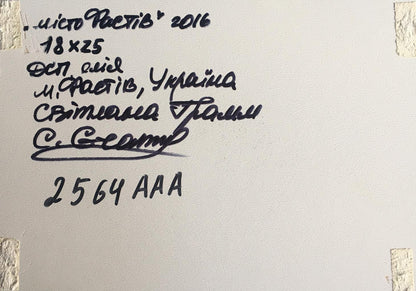 "місто Фастів" 2016
18×25
ДСП олія
м. Фастів, Україна
Світлана Грамм
С.
2564 ААА